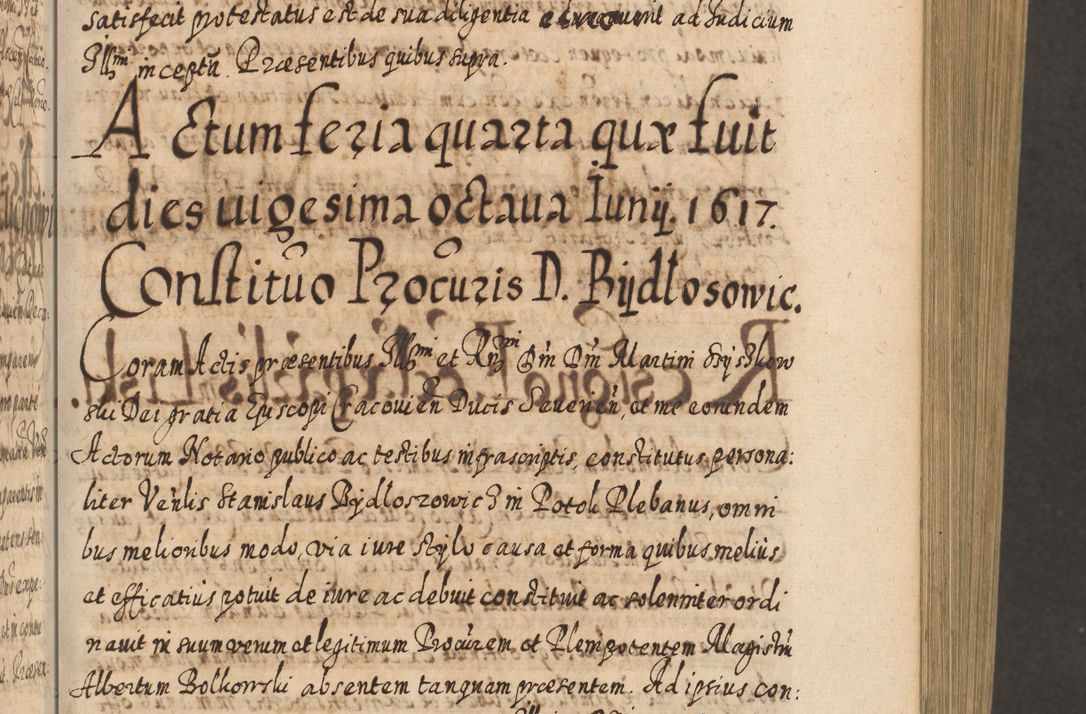 satisfecit protestatus est de sua diligentia ad Iudicium
Ill͂m incepta. Præsentibus quibus supra.
Actum feria quarta quæ fuit
dies uigesima octaua Iunij. 1617.
Constituo Procuris D. Bijdłosowic.
Coram Actis præsentibus Ill͂mi et Rn͂mi Dn͂i Dn͂i Martini Szyszkow
ski Dei gratia Episcopi Cracouień Ducis Seuerień, et me eorundem
Actorum Notario publico ac testibus infrascriptis, constitutus persona:
liter Ven͂lis Stanislaus Bÿdloszowicz in Potok Plebanus, omni
bus melioribus modo, via iure stÿlo causa et forma quibus meliùs
et efficatiùs potuit de iure ac debuit constituit ac solenniter ordi
nauit in suum verum et legitimum Procūrem et Plenipotentem Magistrū
Albertum Bolkowski absentem tanquam præsentem. Ad ipsius con: